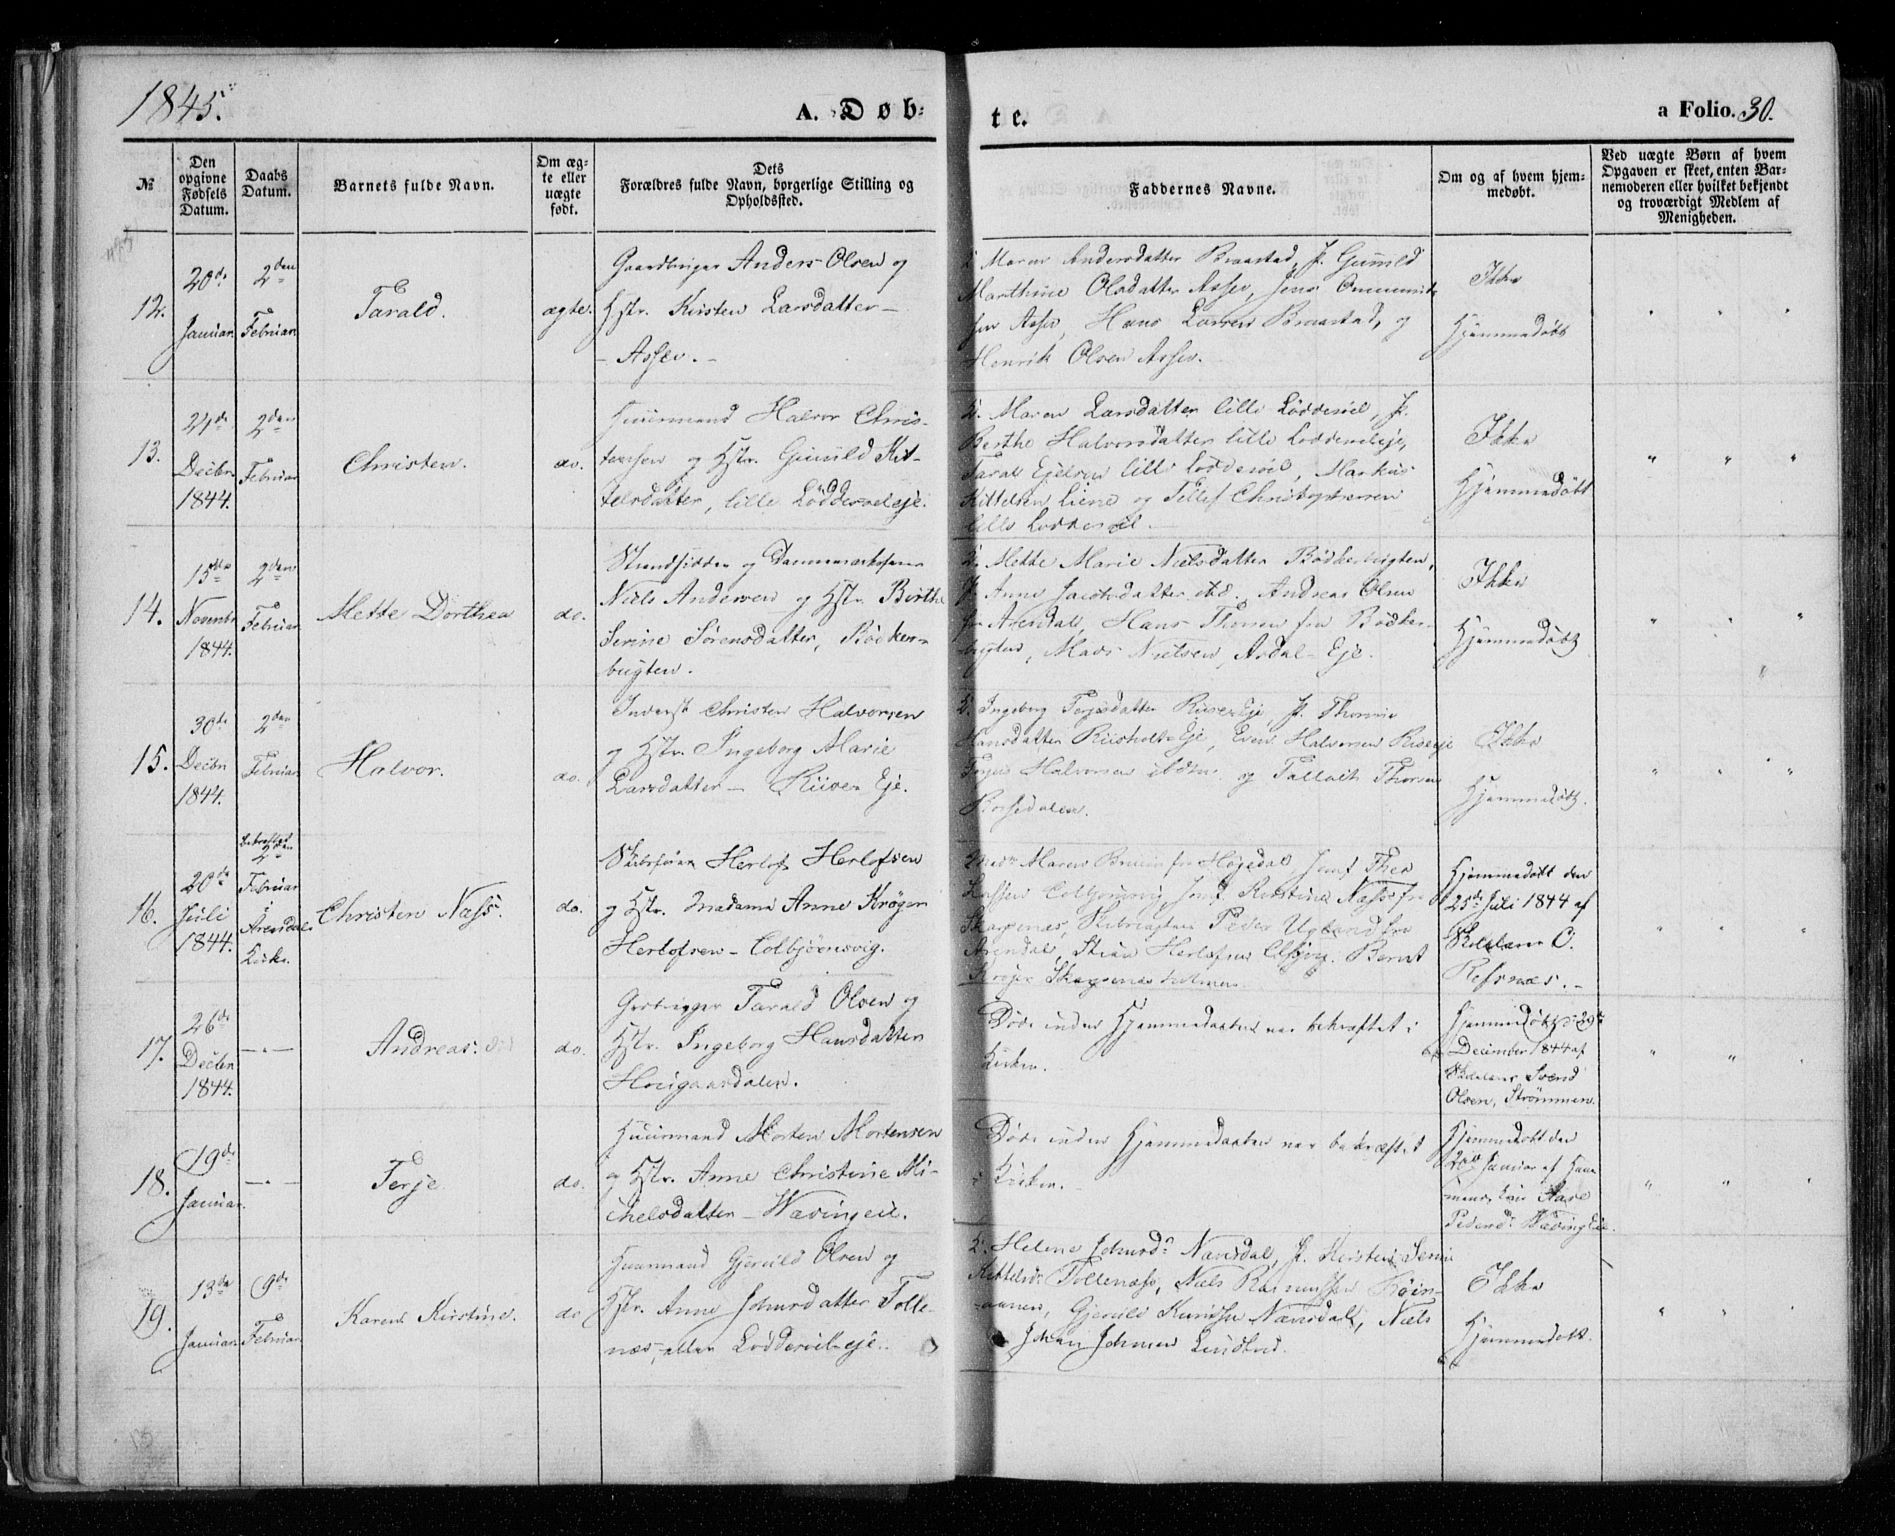 1845.
A. Døb-
te.
a Folio. 30.
№
Den opgivne Fødsels Datum.
Daabs Datum.
Barnets fulde Navn.
Om ægte eller uægte født.
Dets Forældres fulde Navn, borgerlige Stilling og Opholdssted.
Faddernes Navne.
Om og af hvem hjemmedøbt.
Ved uægte Børn af hvem Opgaven er skeet, enten Barnemoderen eller hvilket bekjendt og troværdigt Medlem af Menigheden.
12.
20de
Januar
2den
Februar
Tarald.
ægte.
Gaardbruger Anders Olsen og
Hstr. Kirsten Larsdatter –
– Assev. –
Maren Andersdatter Braastad, P. Gunild
Marthine Olsdatter Assev, Jens
sen Assev, Hans Larsen Braastad, og
Henrik Olsen Assev.
Ikke
Hjemmedøbt
13.
Decbr
1844.
2den
Februar
Christen.
do.
Huusmand Halvor Chris-
tensen og Hstr. Gunild Kit-
telsdatter, lille Løddesøeleje.
Maren Larsdatter lille Løddesøel, P.
Berthe Halvorsdatter lille Løddesøeleje,
lille Løddesøel, Markus
Kittelsen Liene og Tellef Christophersen
lille Løddesøel.
Ikke
Hjemmedøbt
14.
15de
Novembr
1844.
2den
Februar
Mette Dorthea
do.
Strandsidder og
Niels Andersen og Hstr. Birthe
Serine Sørensdatter, Bødker-
bugten.
Mette Marie Nielsdatter Bødkerbugten,
P. Anne Jacobsdatter ibd. Andreas Olsen
fra Arendal, Hans Thorsen fra Bødker-
bugten, Mads Nielsen, Asdal-Eje.
Ikke
Hjemmedøbt
15.
30te
Decbr
1844.
2den
Februar
Halvor.
do.
Inderst Christen Halvorsen
og Hstr. Ingeborg Marie
Larsdatter – Riisen Eje.
Ingeborg Terjesdatter Riisen Eje, P. Thorine
Hansdatter Riisholt-Eje, Even Halvorsen Riiseneje
Halvorsen ibdm. og Tallak Thorsen
Ikke
Hjemmedøbt.
16.
20de
Juli
1844.
bekræftet
2den
Februar
i
Arendals
Kirke.
Christen Næss.
do.
Skibsfører Herlof Herlofsen
og Hstr. Madame Anne Krøger
Herlofsen – Colbjørnsvig.
Maren Bruun fra Højedal, Jomf. Thea
Lassen Colbjørnsvig, Jomf. Kirstine Næss fra
Peder Ugland fra
Arendal, Herlofsen Bernt
Krøger
Hjemmedøbt den
25de Juli 1844 af
Skolelærer O.
Refsnæs. –
17.
26de
Decbr
1844.
– . –
Andreas.
do.
Tarald Olsen og
Hstr. Ingeborg Hansdatter
Houigaardalen.
Døde inden Hjemmedaaben var bekræftet i
Kirken.
Hjemmedøbt 29de
December 1844 af
Skolelærer Svend
Olsen, Strømmen.
18.
19de
Januar.
– . –
Terje.
do.
Huusmand Morten Mortensen
og Hstr. Anne Christine Mi-
chelsdatter – Wævingeie.
Døde inden Hjemmedaaben var bekræftet
i Kirken.
Hjemmedøbt den
20de Januar af Huus-
mands kone Aase
Pedersdr Wæving Eie.
19.
13de
Januar
9de
Februar
Karen Kirstine.
do
Huusmand Gjeruld Olsen og
Hstr. Anne Johnsdatter Tolle-
næs, eller Løddesøel-eje.
Helene Johnsdr Næsdal, P. Kirsten Serine
Kittelsdr Tollenæss, Niels Rasmussen
Gjeruld Knudsen Næsdal, Niels
Johan Johnsen Lindtved.
Ikke
Hjemmedøbt.